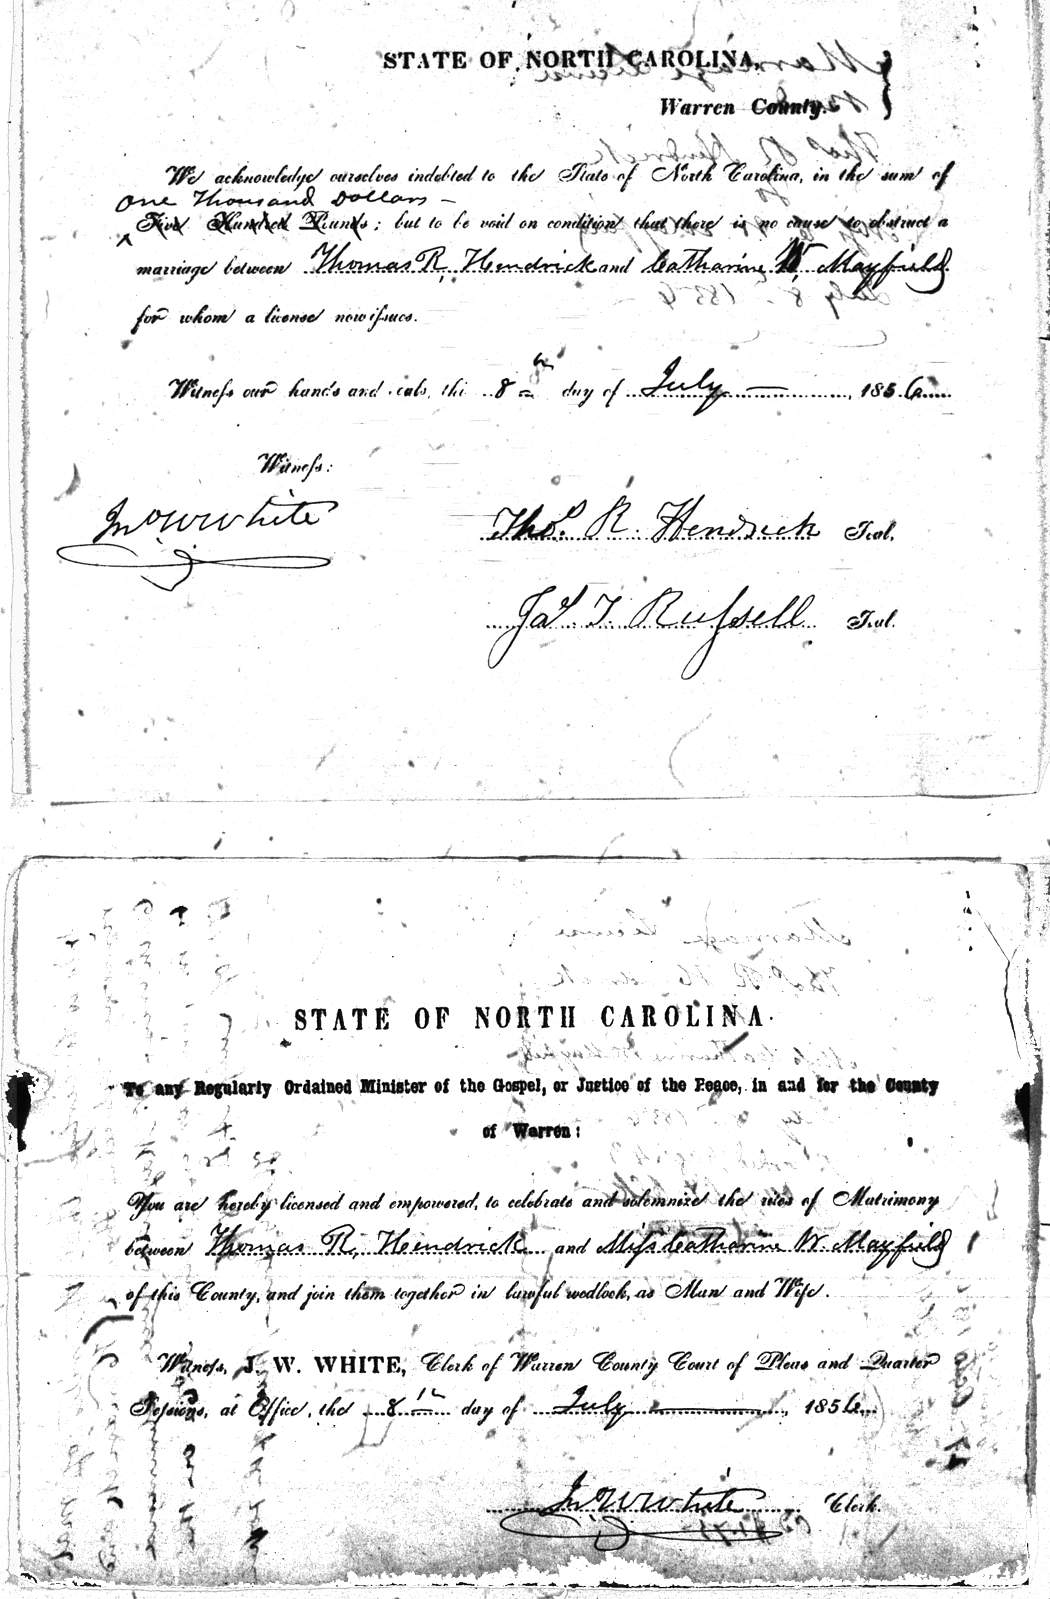 STATE OF NORTH CAROLINA,
Warren County.
We acknowledge ourselves indebted to the State of North Carolina, in the sum of
One Thousand Dollars –
Five Hundred Pounds; but to be void on condition that there is no cause to obstruct a
marriage between Thomas R. Hendrick and Catharine W. Mayfield
for whom a license now issues.
Witness our hands and seals, this 8th day of July — 1856
Witness:
Jno W White
Thos. R. Hendrick Seal.
Jas. T. Russell Seal.
STATE OF NORTH CAROLINA.
To any Regularly Ordained Minister of the Gospel, or Justice of the Peace, in and for the County
of Warren:
You are hereby licensed and empowered, to celebrate and solemnize the rites of Matrimony
between Thomas R. Hendrick and Miss Catharine W. Mayfield
of this County, and join them together in lawful wedlock, as Man and Wife.
Witness, J. W. WHITE, Clerk of Warren County Court of Pleas and Quarter
Sessions, at Office, the 8th day of July — 1856
Jno W White Clerk.